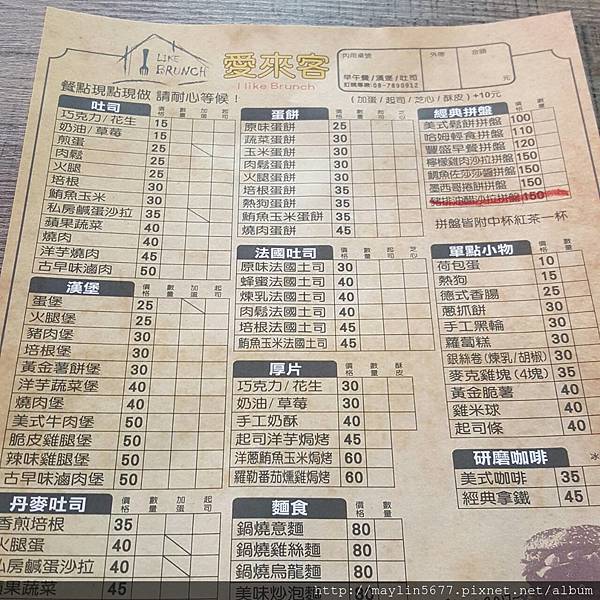 I LIKE
BRUNCH
愛來客
I like Brunch
內用桌號
外帶
金額
元
早午餐/漢堡/吐司
訂購專線:08-7890912
餐點現點現做 請耐心等候!
(加蛋/起司/芝心/酥皮)+10元
吐司 價格 數量 加蛋 起司
巧克力/花生 15
奶油/草莓 15
煎蛋 25
肉鬆 25
火腿 25
培根 30
鮪魚玉米 30
私房鹹蛋沙拉 35
蘋果蔬菜 40
燒肉 40
洋芋燒肉 45
古早味滷肉 50
漢堡 價格 數量 加蛋 起司
蛋堡 25
火腿堡 25
豬肉堡 30
培根堡 30
黃金薯餅堡 30
洋芋蔬菜堡 40
燒肉堡 40
美式牛肉堡 50
脆皮雞腿堡 50
辣味雞腿堡 50
古早味滷肉堡 50
丹麥吐司 價格 數量 加蛋 起司
香煎培根 35
火腿蛋 40
私房鹹蛋沙拉 40
蘋果蔬菜 45
蛋餅 價格 數量 起司 芝心
原味蛋餅 25
蔬菜蛋餅 30
玉米蛋餅 30
肉鬆蛋餅 30
火腿蛋餅 30
培根蛋餅 35
熱狗蛋餅 35
鮪魚玉米蛋餅 35
燒肉蛋餅 45
法國吐司 價格 數量 起司 芝心
原味法國土司 30
蜂蜜法國土司 40
煉乳法國土司 40
肉鬆法國土司 40
培根法國土司 45
鮪魚玉米法國土司 45
厚片 價格 數量 酥皮
巧克力/花生 30
奶油/草莓 30
手工奶酥 40
起司洋芋焗烤 45
洋蔥鮪魚玉米焗烤 60
羅勒番茄燻雞焗烤 60
麵食 價格 數量
鍋燒意麵 80
鍋燒雞絲麵 80
鍋燒烏龍麵 80
美味炒泡麵 80
經典拼盤 價格 數量
美式鬆餅拼盤 100
哈姆輕食拼盤 110
豐盛早餐拼盤 120
檸檬雞肉沙拉拼盤 150
鯛魚佐莎莎醬拼盤 150
墨西哥捲餅拼盤 150
豬排油醋沙拉拼盤 150
拼盤皆附中杯紅茶一杯
單點小物 價格 數量
荷包蛋 10
熱狗 15
德式香腸 25
蔥抓餅 30
手工黑輪 30
蘿蔔糕 30
銀絲卷(煉乳/胡椒) 30
麥克雞塊(4塊) 35
黃金脆薯 40
雞米球 40
起司條 40
研磨咖啡 價格 數量 冰
美式咖啡 35
經典拿鐵 45
http://maylin5677.pixnet.net/album